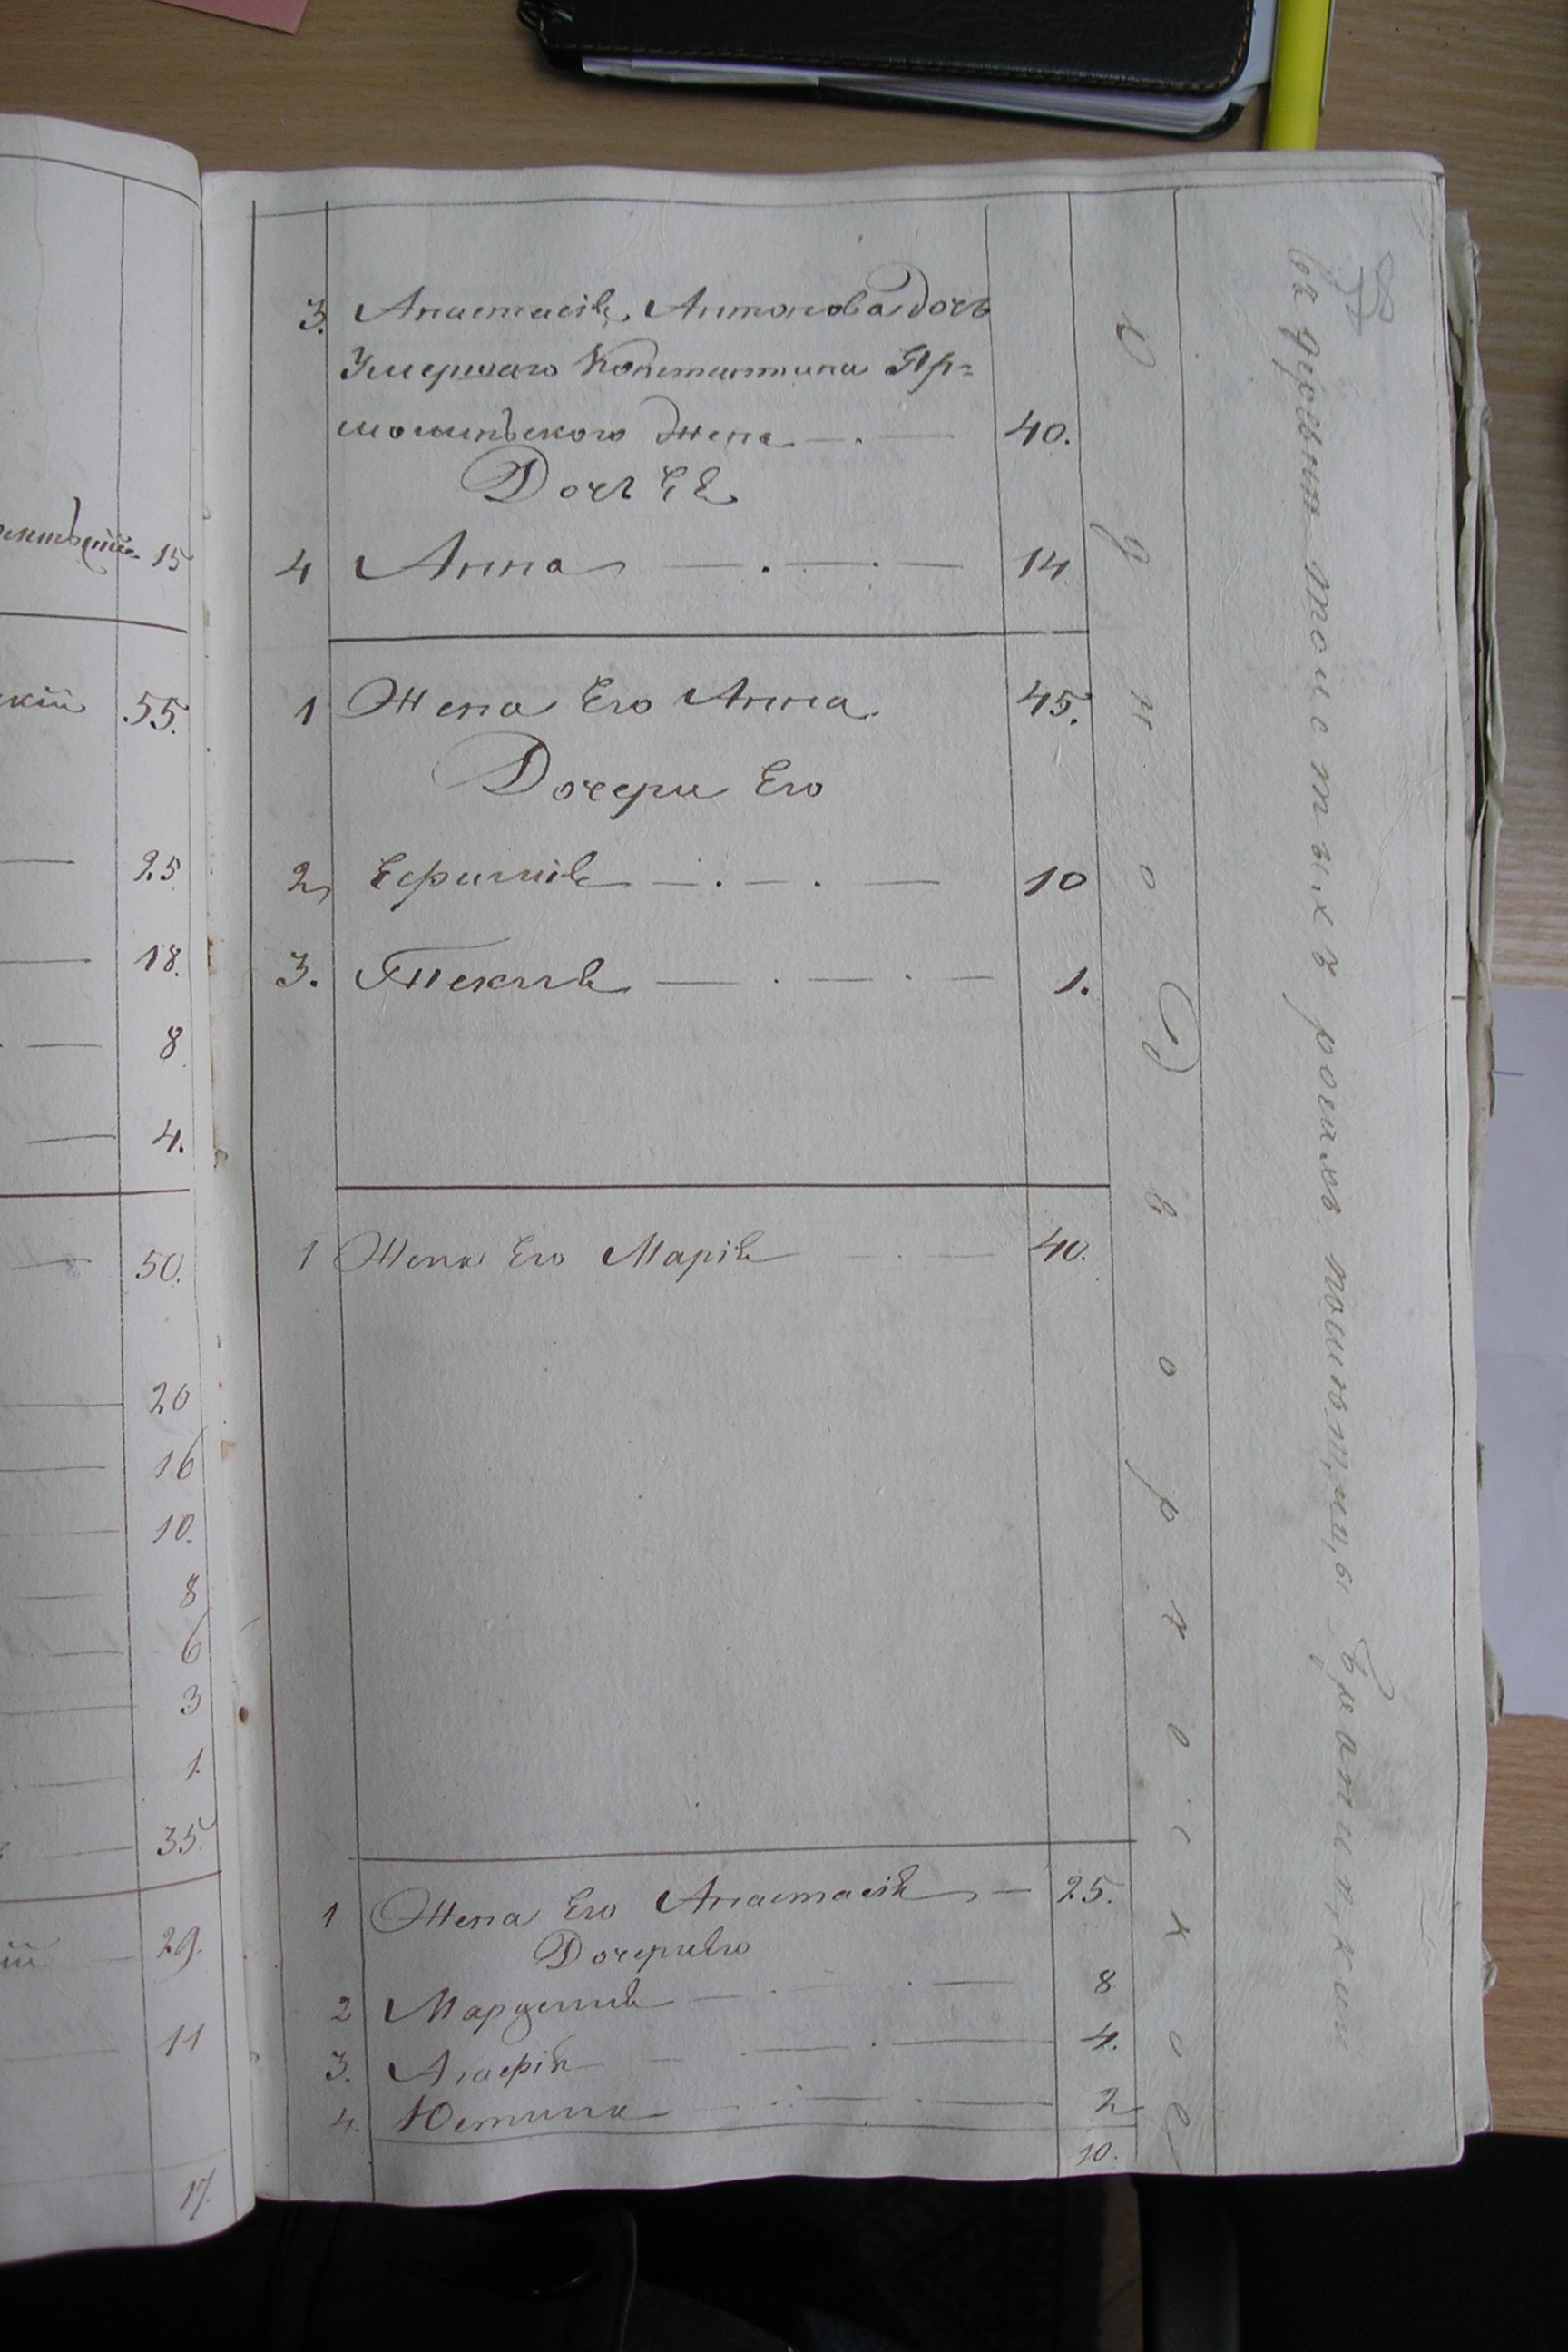 15
55.
25
18.
8
4.
50.
20
16
10.
8
6
3
1.
35.
29.
11
17.
3. Анастасія, Антонова дочь
Умершаго Константина Яр=
мошинского Жена 40.
Дочь Её
4 Анна 14
1 Жена Его Анна 45.
Дочери Его
2, Ефимія 10
3. Текля 1.
1 Жена Его Марія 40.
1 Жена Его Анастасія 25.
Дочери Его
2 8.
3. Агафія 4.
4. Юстина 2
10.
Однодворческое
въ деревни толстыхъ рогахъ помещицы
78